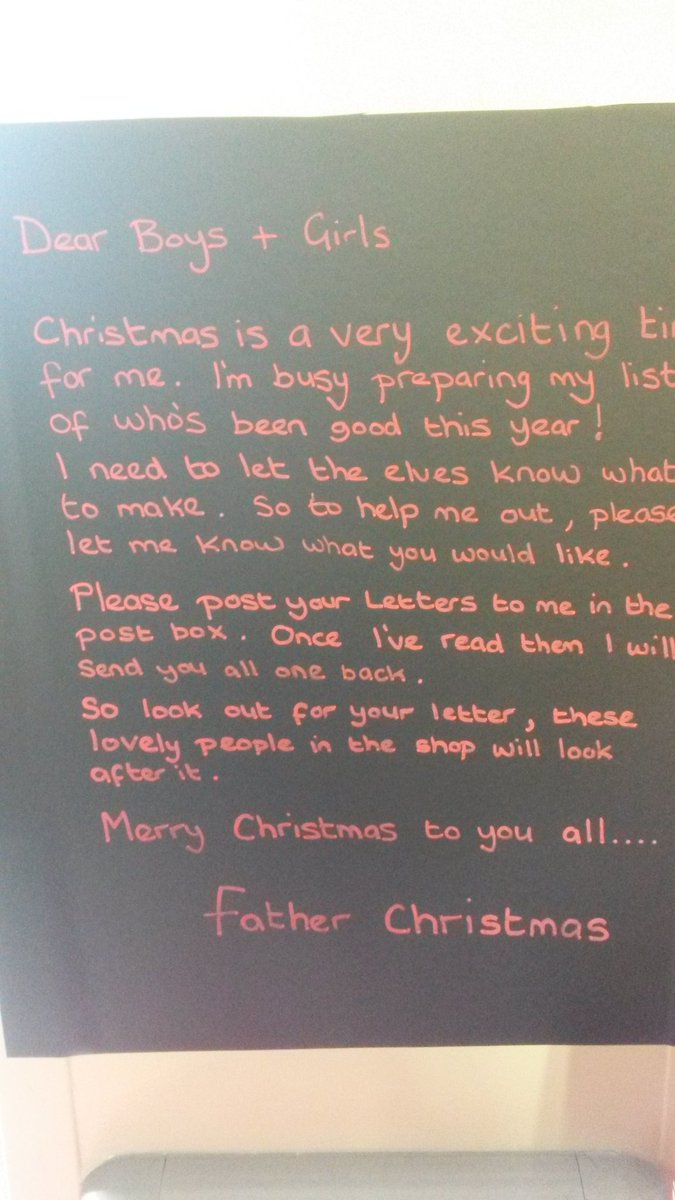 Dear Boys + Girls
Christmas is a very exciting
for me. I'm busy preparing my list
of who's been good this year!
I need to let the elves know what
to make. So to help me out, please
let me know what you would like.
Please post your Letters to me in the
post box. Once I've read them I will
send you all one back.
So look out for your letter, these
lovely people in the shop will look
after it.
Merry Christmas to you all....
Father Christmas